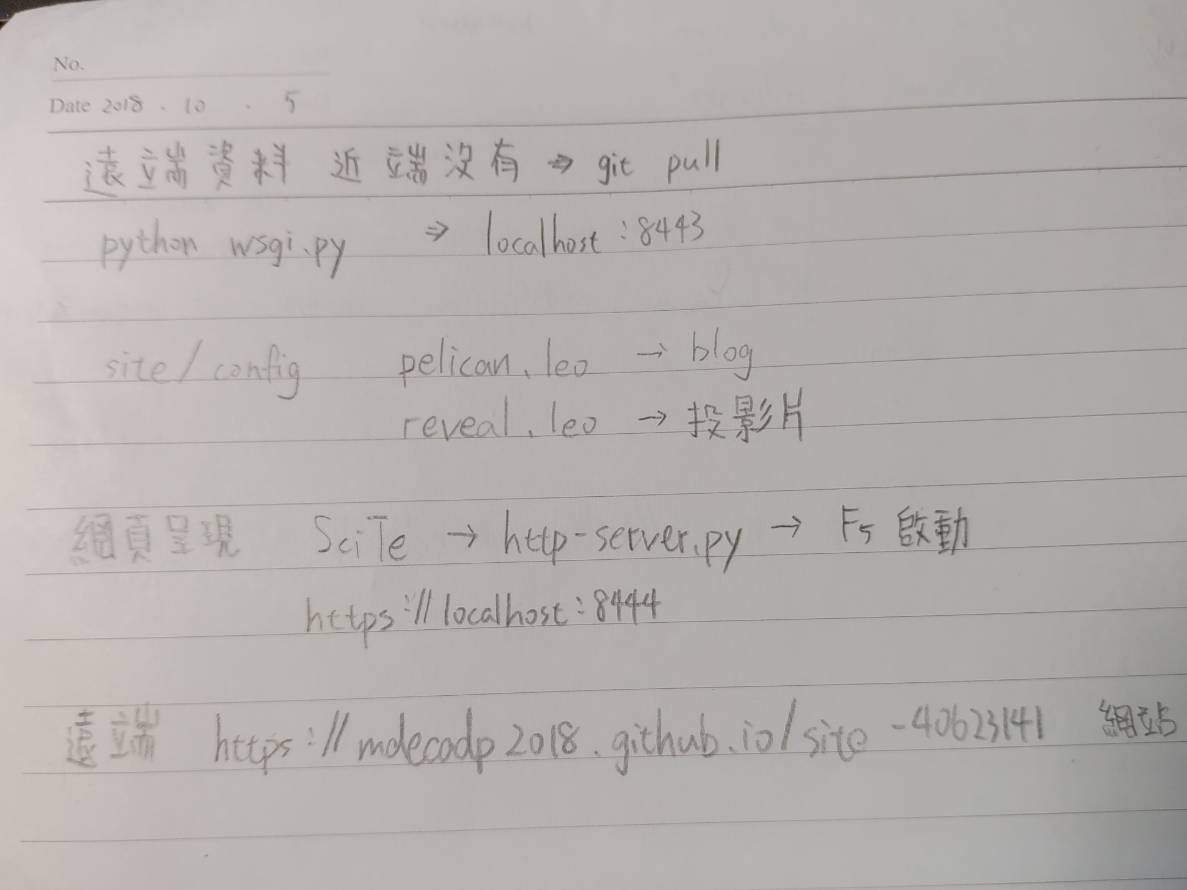 No.
Date 2018 . 10 . 5
遠端資料 近端沒有 ⇒ git pull
python wsgi.py ⇒ localhost:8443
site/config pelican.leo → blog
reveal.leo → 投影片
網頁呈現 SciTe → http-server.py → F5 啟動
https://localhost:8444
遠端 https://mdecadp2018.github.io/site-40623141 網站